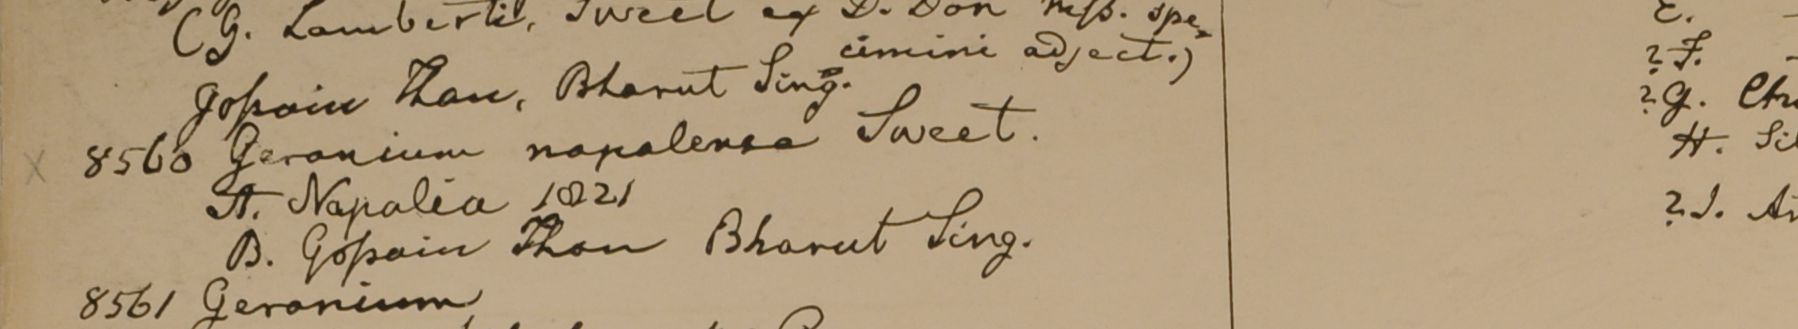 (G. Lamberti, Sweet ex D. Don mss. spe-
cimini adject.)
Gossain Than, Bharut Sing.
8560 Geranium napalense Sweet.
A. Napalia 1821
B. Gossain Than Bharut Sing.
8561 Geranium
E.
? F.
? G.
H.
? I.